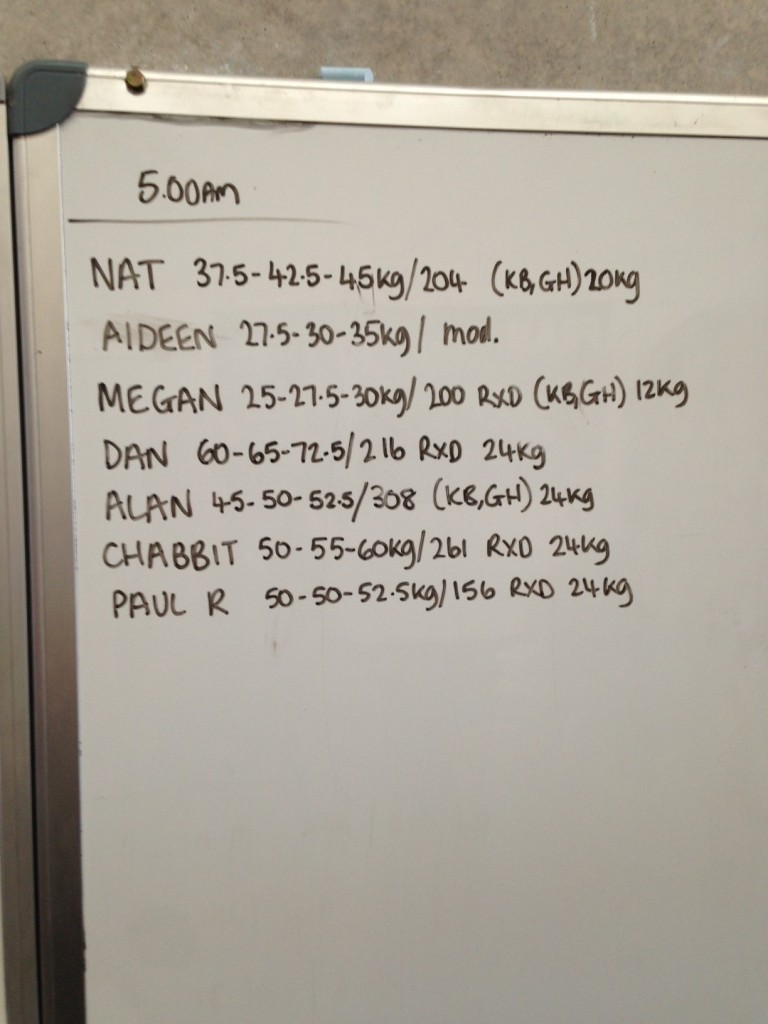 5.00AM
NAT 37.5-42.5-45kg/204 (KB,GH) 20kg
AIDEEN 27.5-30-35kg/ mod.
MEGAN 25-27.5-30kg/ 200 RXD (KB,GH) 12kg
DAN 60-65-72.5/216 RXD 24kg
ALAN 45-50-52.5/308 (KB,GH) 24kg
CHABBIT 50-55-60kg/261 RXD 24kg
PAUL R 50-50-52.5kg/156 RXD 24kg